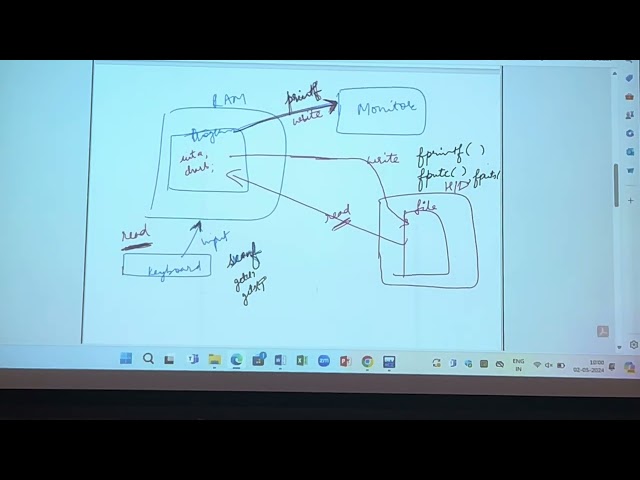 RAM
printf
write
Monitor
Program
int a,
char b;
write
fprintf( )
fputc( )
H/D, fputs(
file
read
read
input
keyboard
scanf
ENG
IN
10:08
02-05-2024